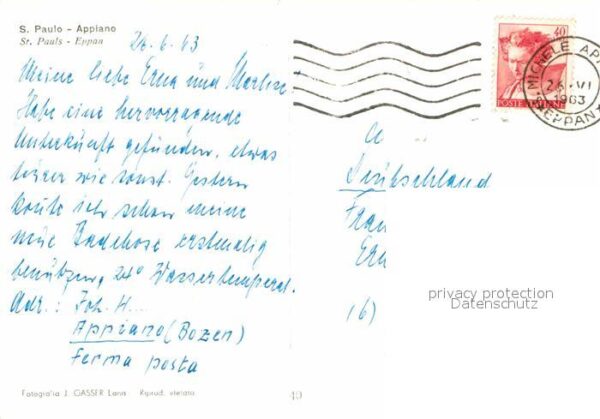 S. Paulo - Appiano
St. Pauls - Eppan
26.6.63
Meine liebe Erna und
Habe eine hervorragende
Unterkunft gefunden, etwas
wie sonst. Gestern
konnte ich schon meine
neue Badehose erstmalig
benützen, 24° Wassertemperat.
Adr.: Joh. H...
Appiano (Bozen)
Ferma posta
Fotografia J. GASSER Lana Riprod. vietata
40
POSTE ITALIANE
MICHELE AP
26.VI
1963
(EPPAN)
Deutschland
Frau
privacy protection
Datenschutz
16)